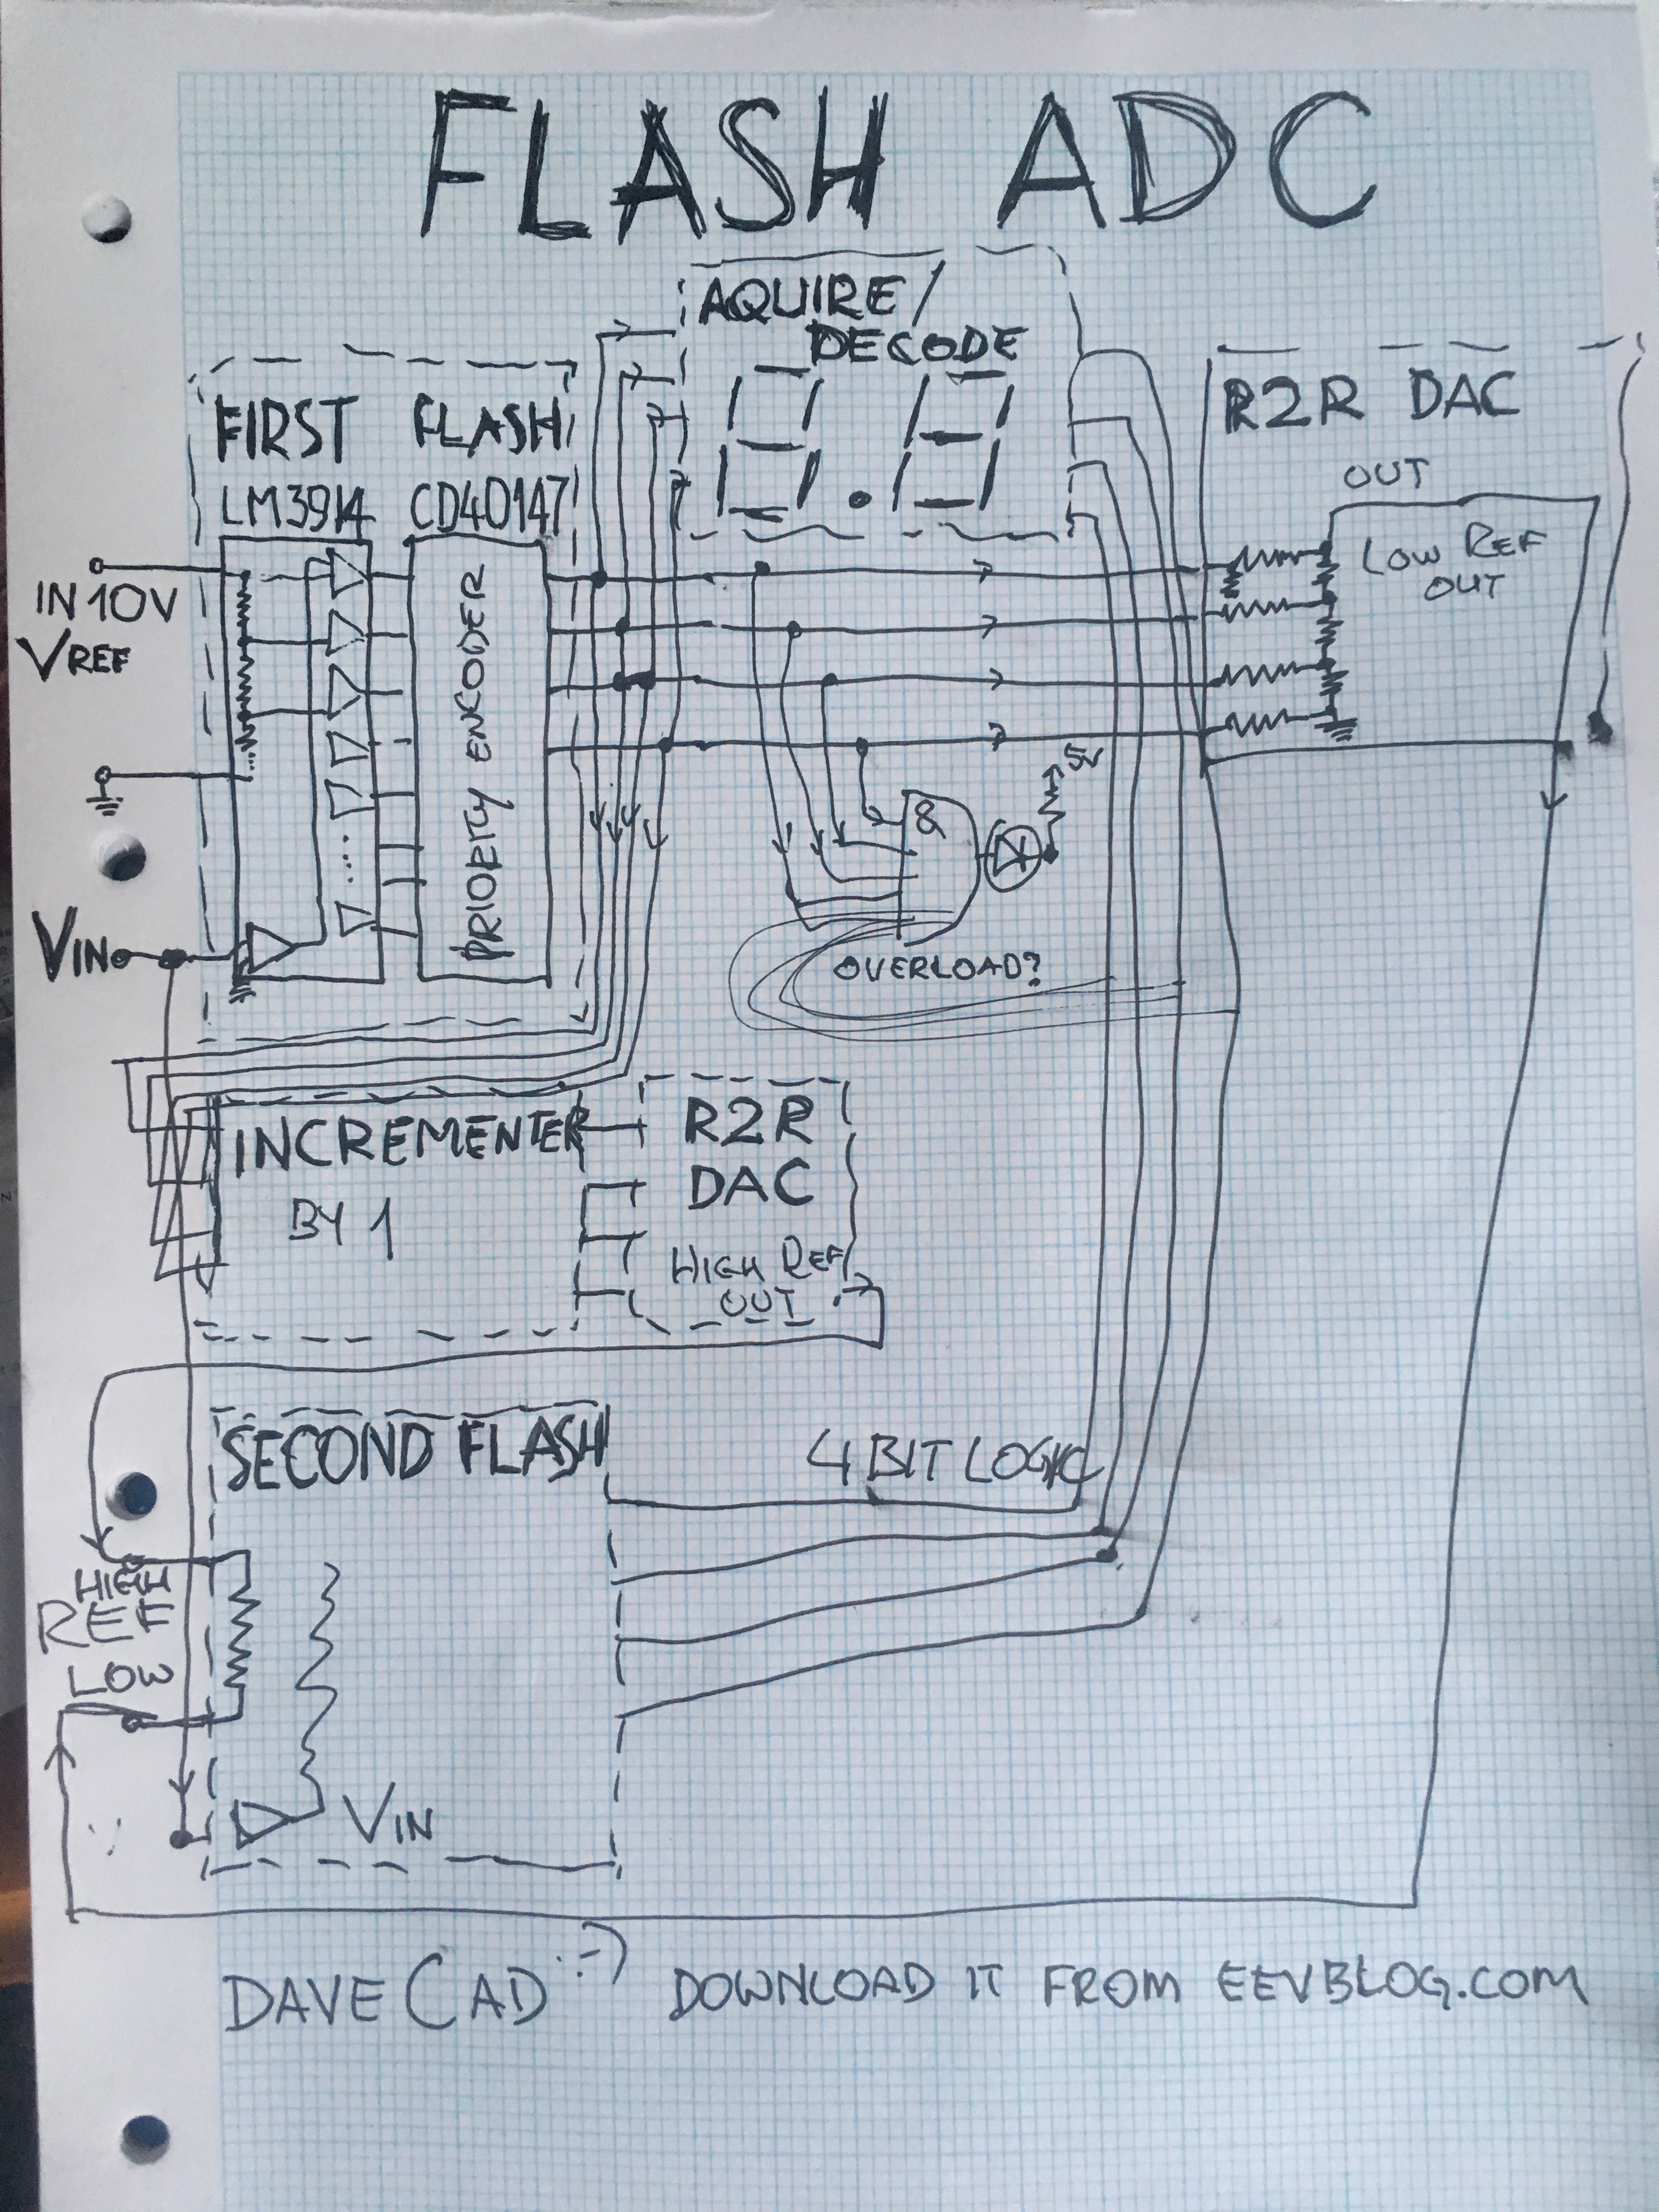 FLASH ADC
AQUIRE/
DECODE
8.8
FIRST FLASH
LM3914 CD40147
R2R DAC
OUT
LOW REF
OUT
IN 10V
VREF
PRIORITY ENCODER
5V
&
VIN
OVERLOAD?
INCREMENTER
BY 1
R2R
DAC
HIGH REF
OUT
SECOND FLASH
4 BIT LOGIC
HIGH
REF
LOW
VIN
DAVECAD :-) DOWNLOAD IT FROM EEVBLOG.COM